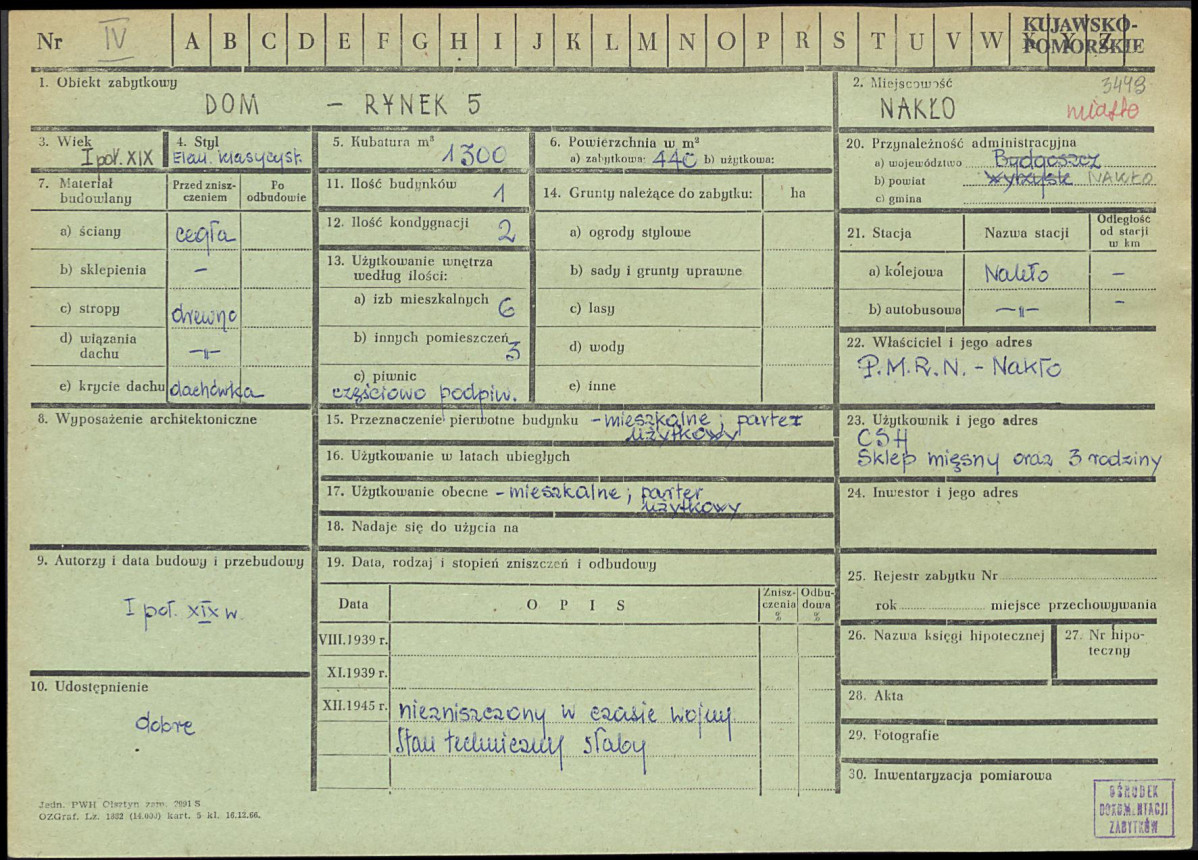 Nr IV A B C D E F G H I J K L M N O P R S T U V W X Y Z
KUJAWSKO-
POMORSKIE
1. Obiekt zabytkowy
DOM - RYNEK 5
2. Miejscowość 3498
NAKŁO miasto
3. Wiek
I poł. XIX
4. Styl
Elem. klasycyst.
5. Kubatura m³
1300
6. Powierzchnia w m²
a) zabytkowa: 440 b) użytkowa:
20. Przynależność administracyjna
a) województwo Bydgoszcz
b) powiat wyrzyskie NAKŁO
c) gmina
7. Materiał
budowlany
Przed znisz-
czeniem
Po
odbudowie
a) ściany cegła
b) sklepienia –
c) stropy drewno
d) wiązania
dachu –"–
e) krycie dachu dachówka
11. Ilość budynków 1
12. Ilość kondygnacji 2
13. Użytkowanie wnętrza
według ilości:
a) izb mieszkalnych 6
b) innych pomieszczeń 3
c) piwnic
częściowo podpiw.
14. Grunty należące do zabytku: ha
a) ogrody stylowe
b) sady i grunty uprawne
c) lasy
d) wody
e) inne
21. Stacja Nazwa stacji
Odległość
od stacji
w km
a) kolejowa Nakło –
b) autobusowa –"– –
22. Właściciel i jego adres
P.M.R.N. - Nakło
8. Wyposażenie architektoniczne
15. Przeznaczenie pierwotne budynku - mieszkalne; parter
użytkowy
16. Użytkowanie w latach ubiegłych
17. Użytkowanie obecne - mieszkalne; parter
użytkowy
18. Nadaje się do użycia na
23. Użytkownik i jego adres
CSH
Sklep mięsny oraz 3 rodziny
24. Inwestor i jego adres
9. Autorzy i data budowy i przebudowy
I poł. XIX w.
10. Udostępnienie
dobre
19. Data, rodzaj i stopień zniszczeń i odbudowy
Data OPIS
Znisz-
czenia
%
Odbu-
dowa
%
VIII.1939 r.
XI.1939 r.
XII.1945 r. niezniszczony w czasie wojny.
Stan techniczny słaby
25. Rejestr zabytku Nr
rok miejsce przechowywania
26. Nazwa księgi hipotecznej
27. Nr hipo-
teczny
28. Akta
29. Fotografie
30. Inwentaryzacja pomiarowa
OŚRODEK
DOKUMENTACJI
ZABYTKÓW
Jedn. PWH Olsztyn zam. 2991 S
OZGraf. Lz. 1832 (14.000) kart. 5 kl. 16.12.66.